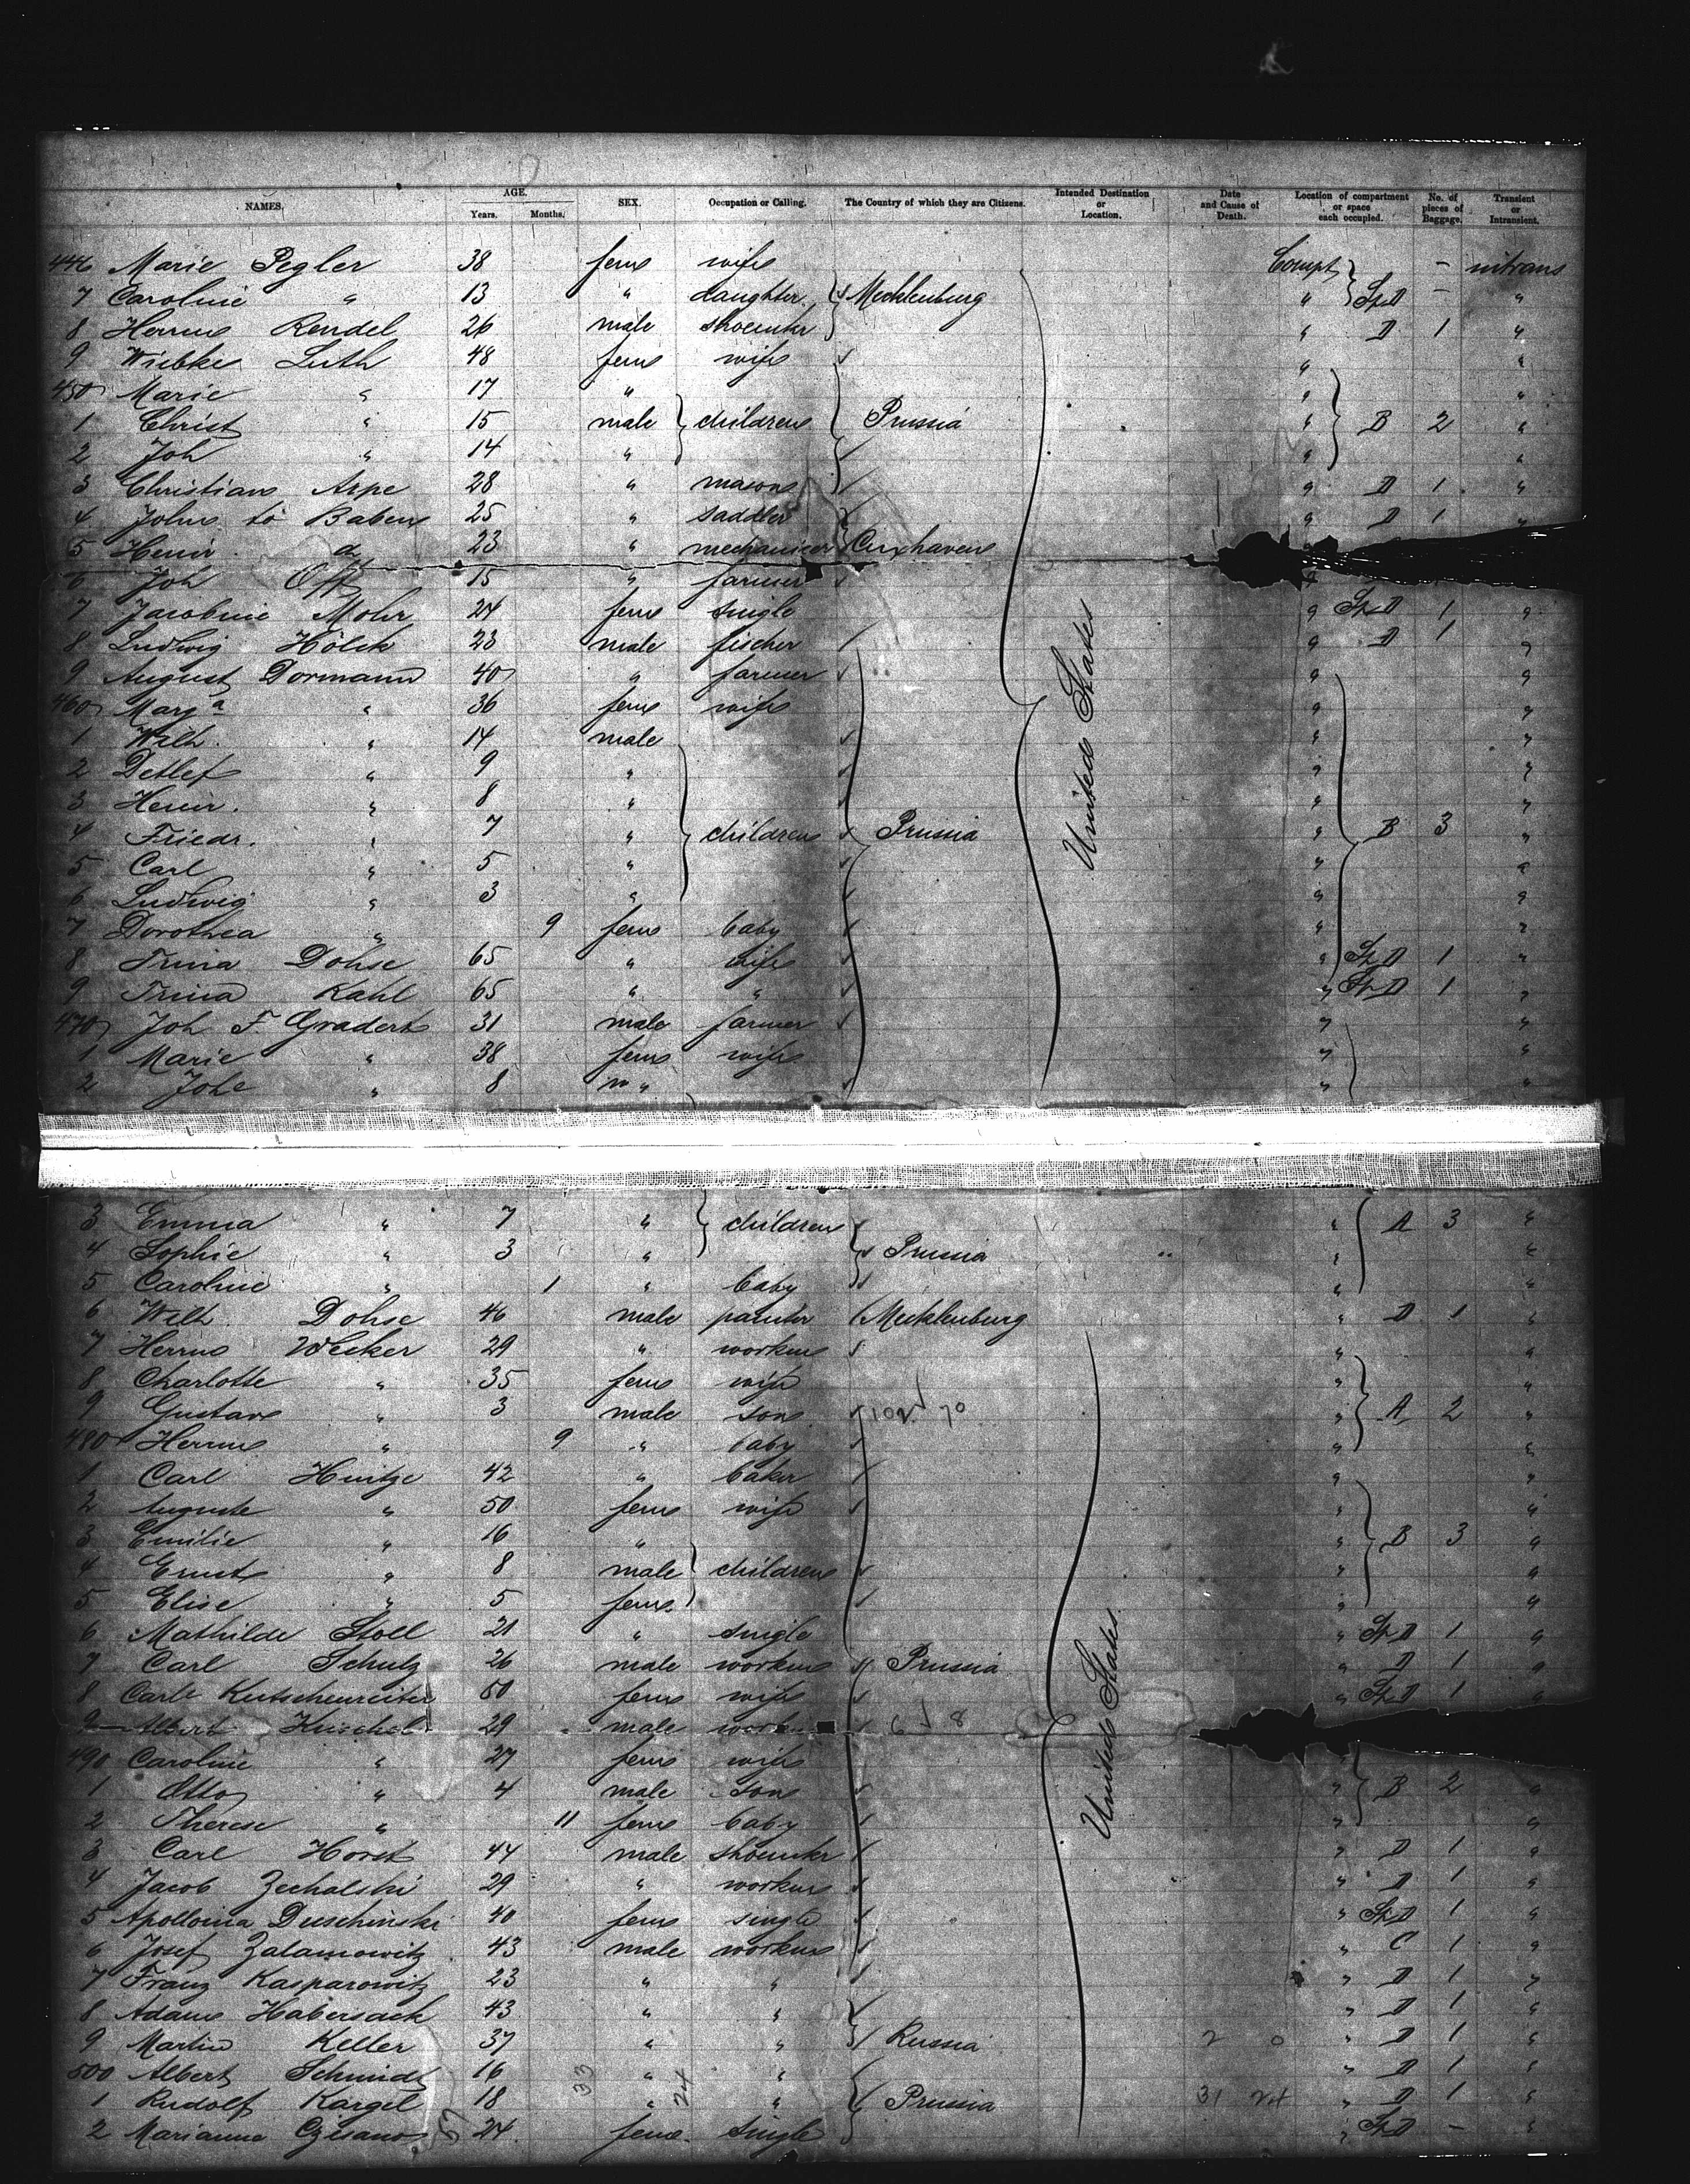 NAMES. AGE. Years. Months. SEX. Occupation or Calling. The Country of which they are Citizens. Intended Destination or Location. Date and Cause of Death. Location of compartment or space each occupied. No. of pieces of Baggage. Transient or Intransient.
446 Marie Pegler 38 fem wife Compt - intrans
7 Caroline " 13 " daughter Mecklenburg " Sp.D - "
8 Herm Rendel 26 male shoemkr " D 1 "
9 Wiebke Luth 48 fem wife " "
450 Marie " 17 " " "
1 Christ " 15 male children Prussia " B 2 "
2 Joh " 14 " " "
3 Christian Arpe 28 " mason " D 1 "
4 John to Baben 25 " saddler " D 1 "
5 Heinr. 23 " mechanicer Cuxhaven
6 Joh Off 15 " farmer
7 Jacobine Mohr 24 fem single " Sp.D 1 "
8 Ludwig Hölck 23 male fischer " D 1 "
9 August Dormann 40 " farmer " "
460 Marg a " 36 fem wife " "
1 Wilh. " 14 male " "
2 Detlef " 9 " " "
3 Heinr. " 8 " " "
4 Friedr. " 7 " children Prussia United States " B 3 "
5 Carl " 5 " " "
6 Ludwig " 3 " " "
7 Dorothea " 9 fem baby " "
8 Trina Dohse 65 " wife " Sp.D 1 "
9 Trina Kahl 65 " " " Sp.D 1 "
470 Joh F. Gradert 31 male farmer " "
1 Marie " 38 fem wife " "
2 Johe " 8 m " " "
3 Emma " 7 " children " A 3 "
4 Sophie " 3 " Prussia " "
5 Caroline " 1 " baby " "
6 Wilh. Dohse 46 male painter Mecklenburg " D 1 "
7 Herm 29 " workm " "
8 Charlotte " 35 fem wife " "
9 Gustav " 3 male son 70 " A 2 "
480 Herm " 9 " baby " "
1 Carl Hintze 42 " baker " "
2 Auguste " 50 fem wife " "
3 Emilie " 16 " " B 3 "
4 Ernst " 8 male children " "
5 Elise " 5 fem. " "
6 Mathilde Stoll 21 " single " Sp.D 1 "
7 Carl Schulz 26 male workm Prussia United States " D 1 "
8 Carle Kutschenreiter 50 fem wife " Sp.D 1 "
9 Albert Krischel 29 male work 6 8
490 Caroline " 27 fem wife "
1 Otto " 4 male son " B 2 "
2 Therese " 11 fem baby " "
3 Carl Horst 44 male shoemkr " D 1 "
4 Jacob Zechalski 29 " workm " D 1 "
5 Apollonia Duschinski 40 fem single " Sp.D 1 "
6 Josef Zalamowitz 43 male workm " C 1 "
7 Franz Kasparowitz 23 " " " D 1 "
8 Adam Habersack 43 " " " D 1 "
9 Martin Keller 37 " " Russia 2 0 " D 1 "
500 Albert Schmidt 16 33 " " " D 1 "
1 Rudolf Kargel 18 " 24 " Prussia 31 24 " D 1 "
2 Marianna 57 24 fem. single " Sp.D - "